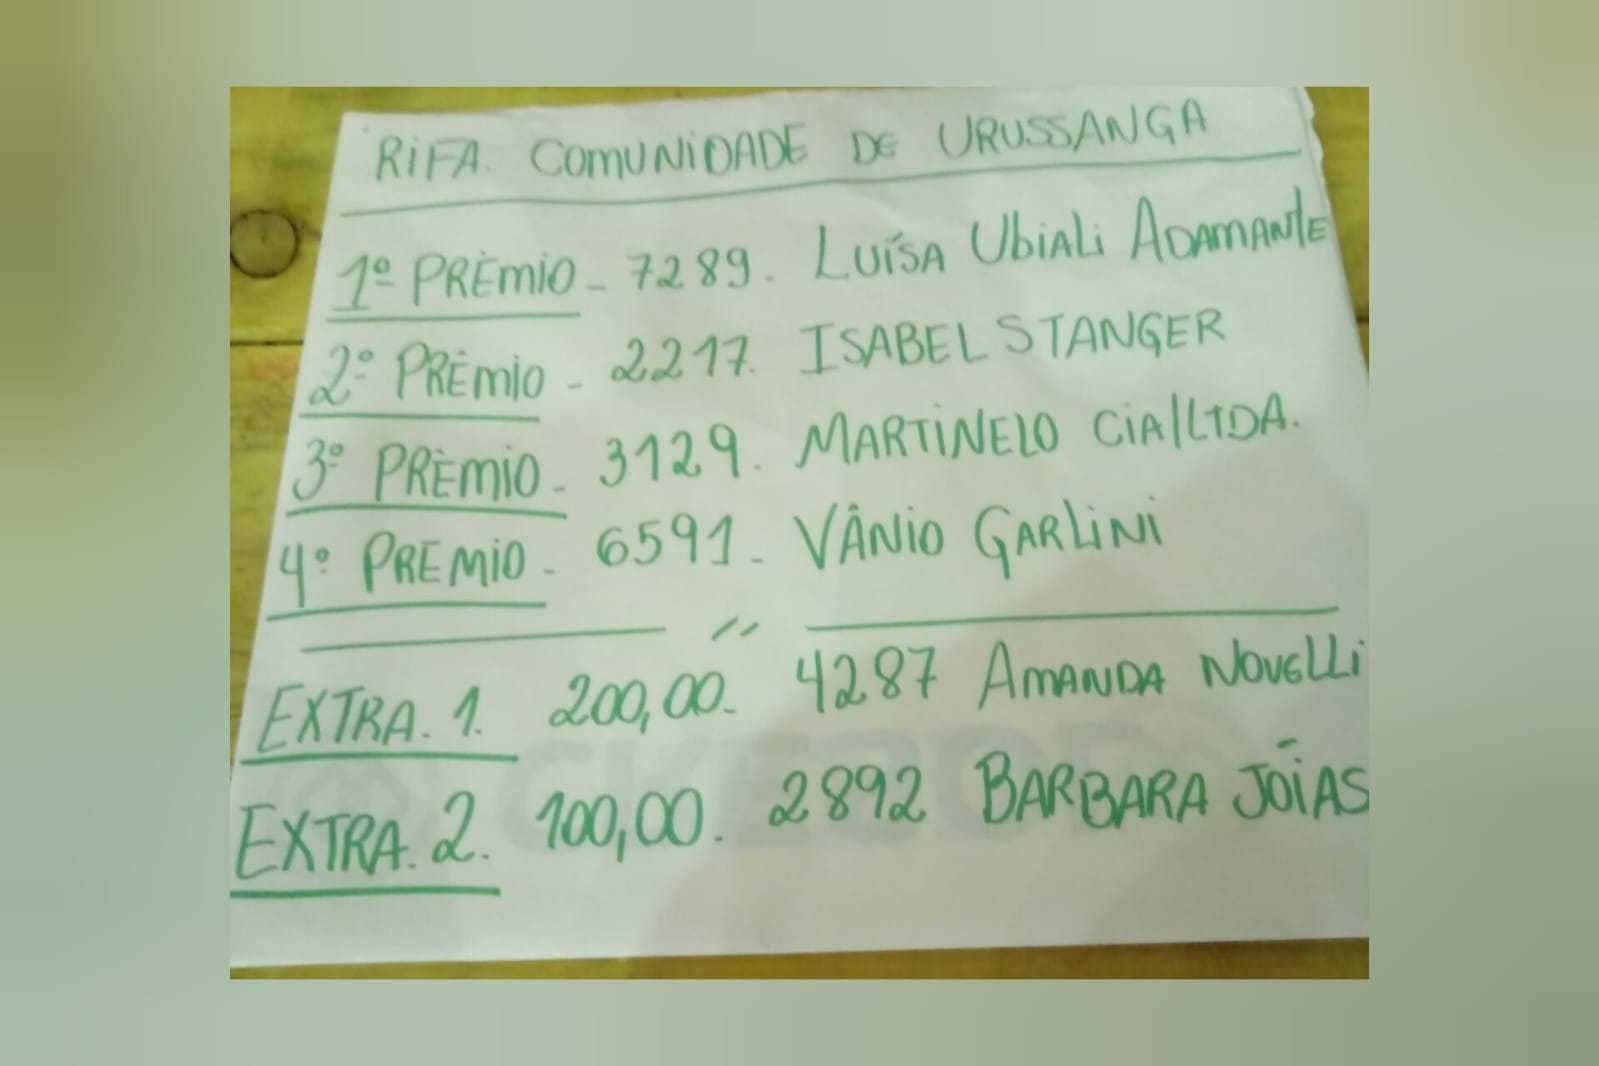 RIFA. COMUNIDADE DE URUSSANGA
1º PRÊMIO - 7289. LUÍSA UBIALI ADAMANTE
2º PRÊMIO - 2217. ISABEL STANGER
3º PRÊMIO - 3129. MARTINELO CIA/LTDA.
4º PREMIO - 6591 - VÂNIO GARLINI
EXTRA. 1. 200,00. 4287 AMANDA NOVELLI
EXTRA. 2. 100,00. 2892 BARBARA JÓIAS